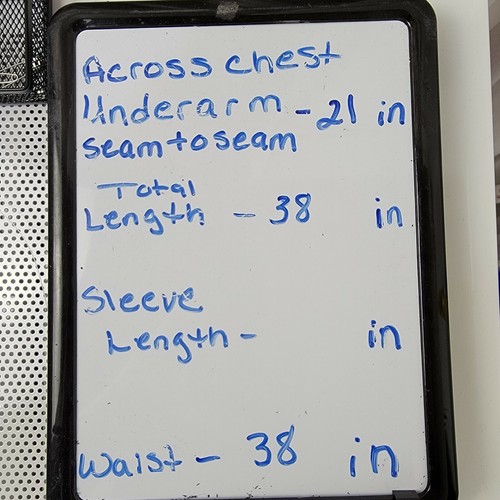 Across chest
Underarm - 21 in
seam to seam
Total
Length - 38 in
Sleeve
Length - in
Waist - 38 in